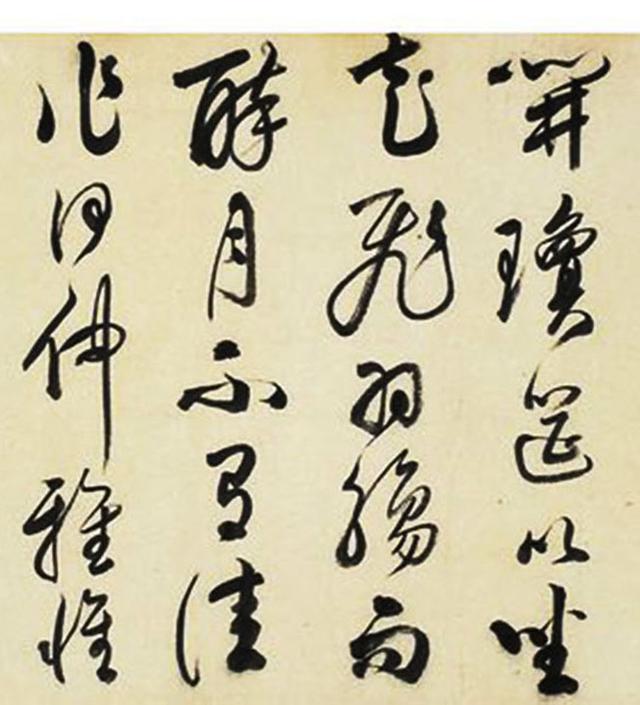 開瓊筵以坐
花飛羽觴而
醉月不有佳
作何伸雅懷